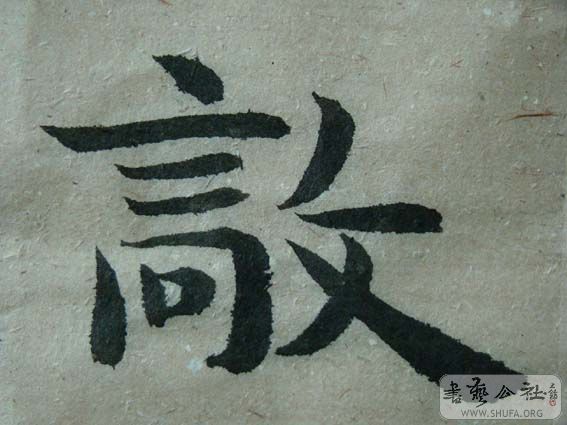 敲
書藝公社
WWW.SHUFA.ORG